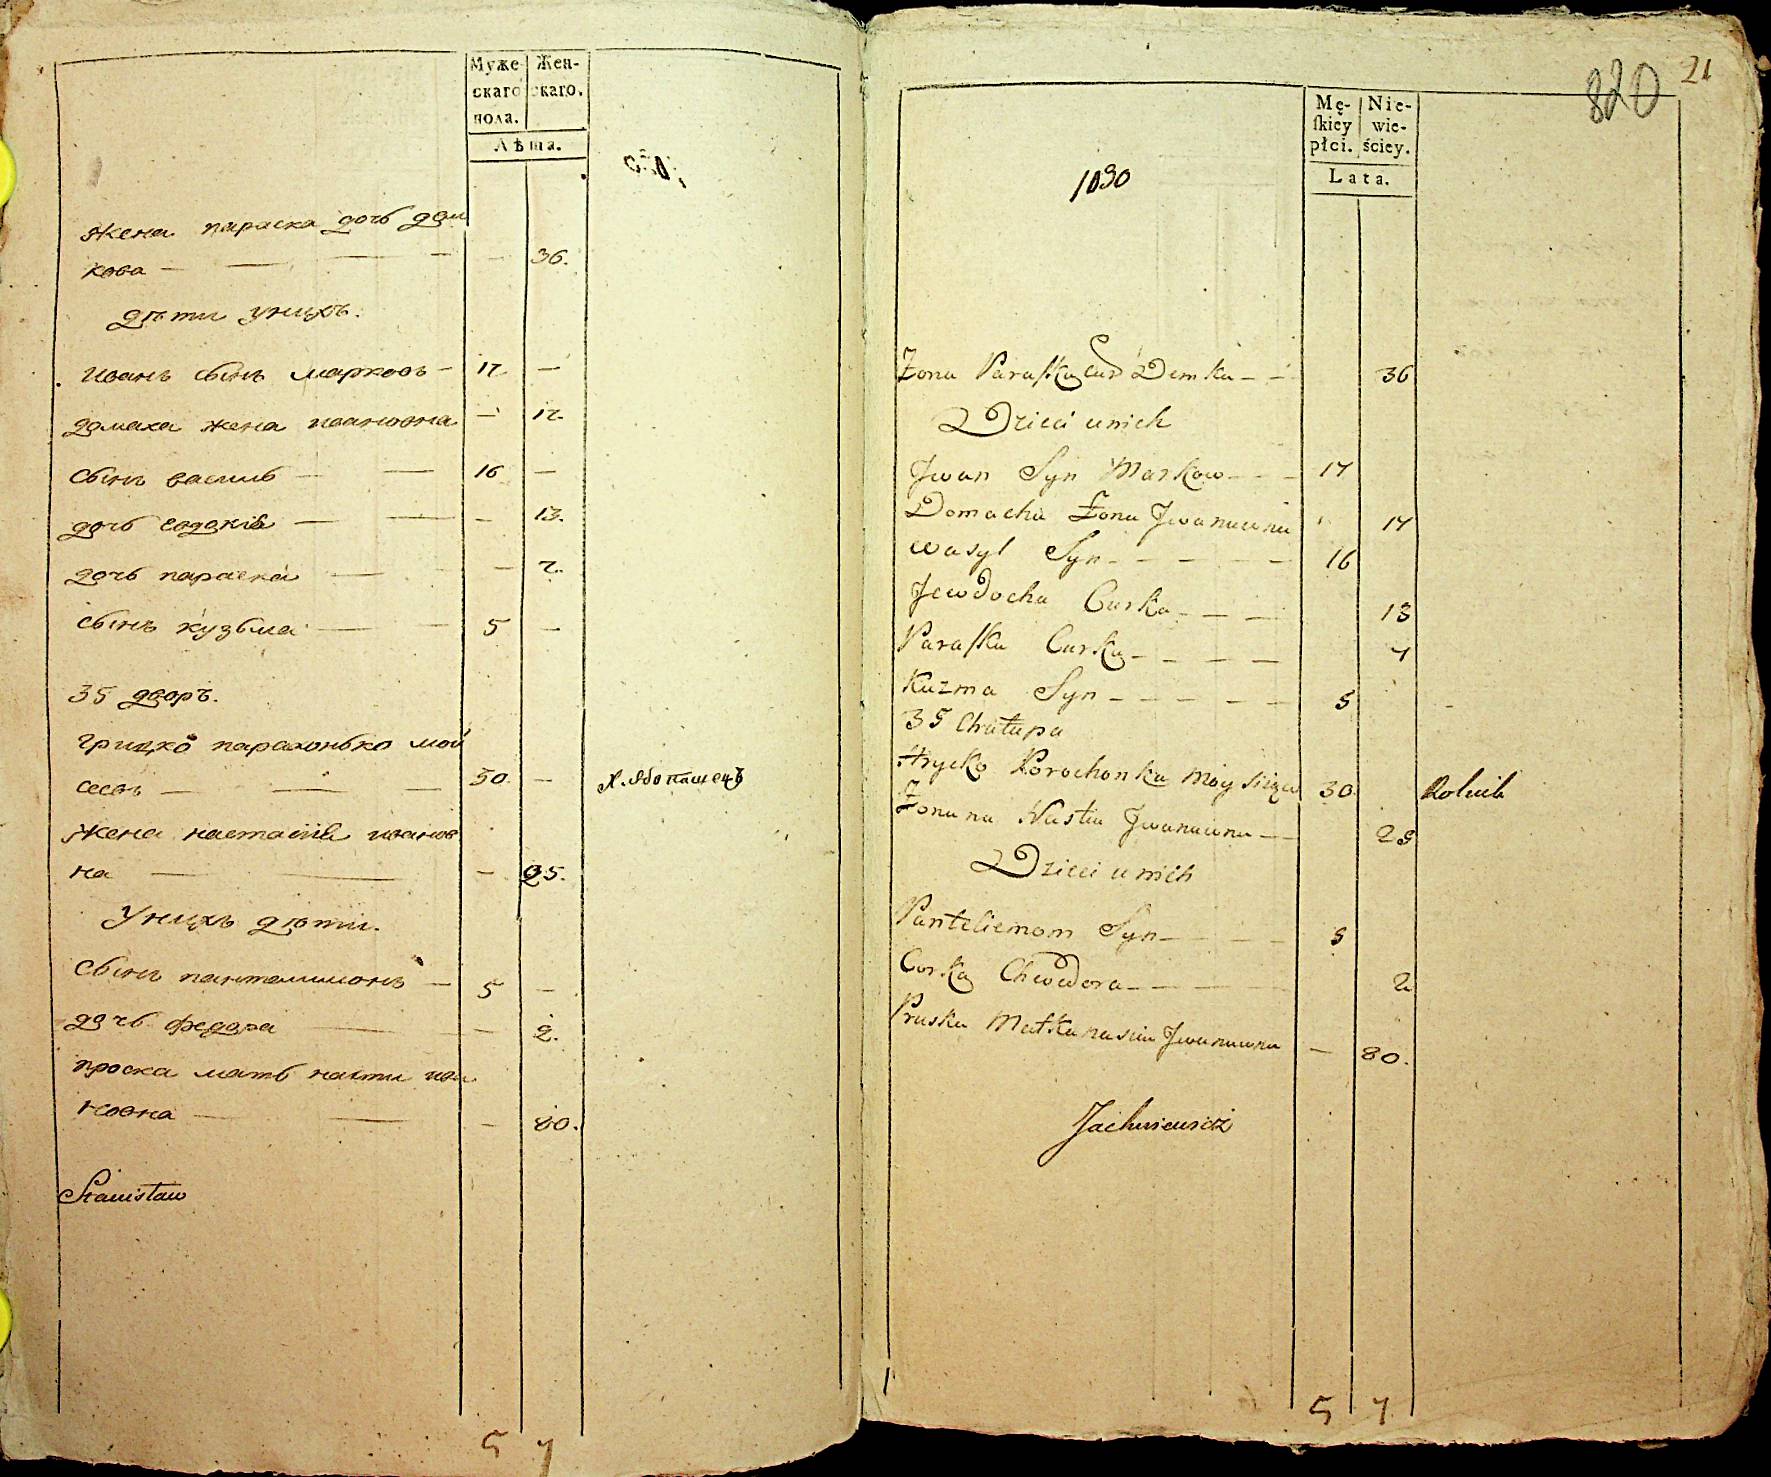 Муже-
скаго
пола.
Жен-
скаго.
Лѣта.
жена параска дочь дем
кова — — — — — 36.
дѣти унихъ.
иванъ сынъ марковъ — 17 —
домаха жена ивановна — 17.
сынъ василь — — 16 —
дочь евдокія — — — 13.
дочь параска — — — 7.
сынъ кузьма — — 5 —
35 дворъ.
грицко парахонько мой
сеевъ — — — 30. — Хлѣбопашецъ
жена настасія иванов
на — — — 25.
Унихъ дѣти.
сынъ пантелимонъ — 5 —
дочь федора — — 2.
проска мать насти ива
новна — — — 80.
Stanisław
5 7
21
820
Mę-
ſkiey
płci.
Nie-
wie-
ściey.
Lata.
1030
Żona Paraſka Cur Demka — — 36
Dzieci unich
Jwan Syn Markow — — — 17
Domacha Żona Jwanowna 17
Wasyl Syn — — — — — 16
Jewdocha Curka — — — 13
Paraſka Curka — — — — 7
Kuzma Syn — — — — — 5
35 Chałupa
Hrycko Porochonka Moysiejow 30. Rolnik
Żona na Nastia Jwanowna — — 25
Dzieci unich
Panteliemom Syn — — — 5
Corka Chwedora — — — — 2
Praska Matka nasti Jwanowna — 80.
Jachniewicz
5 7